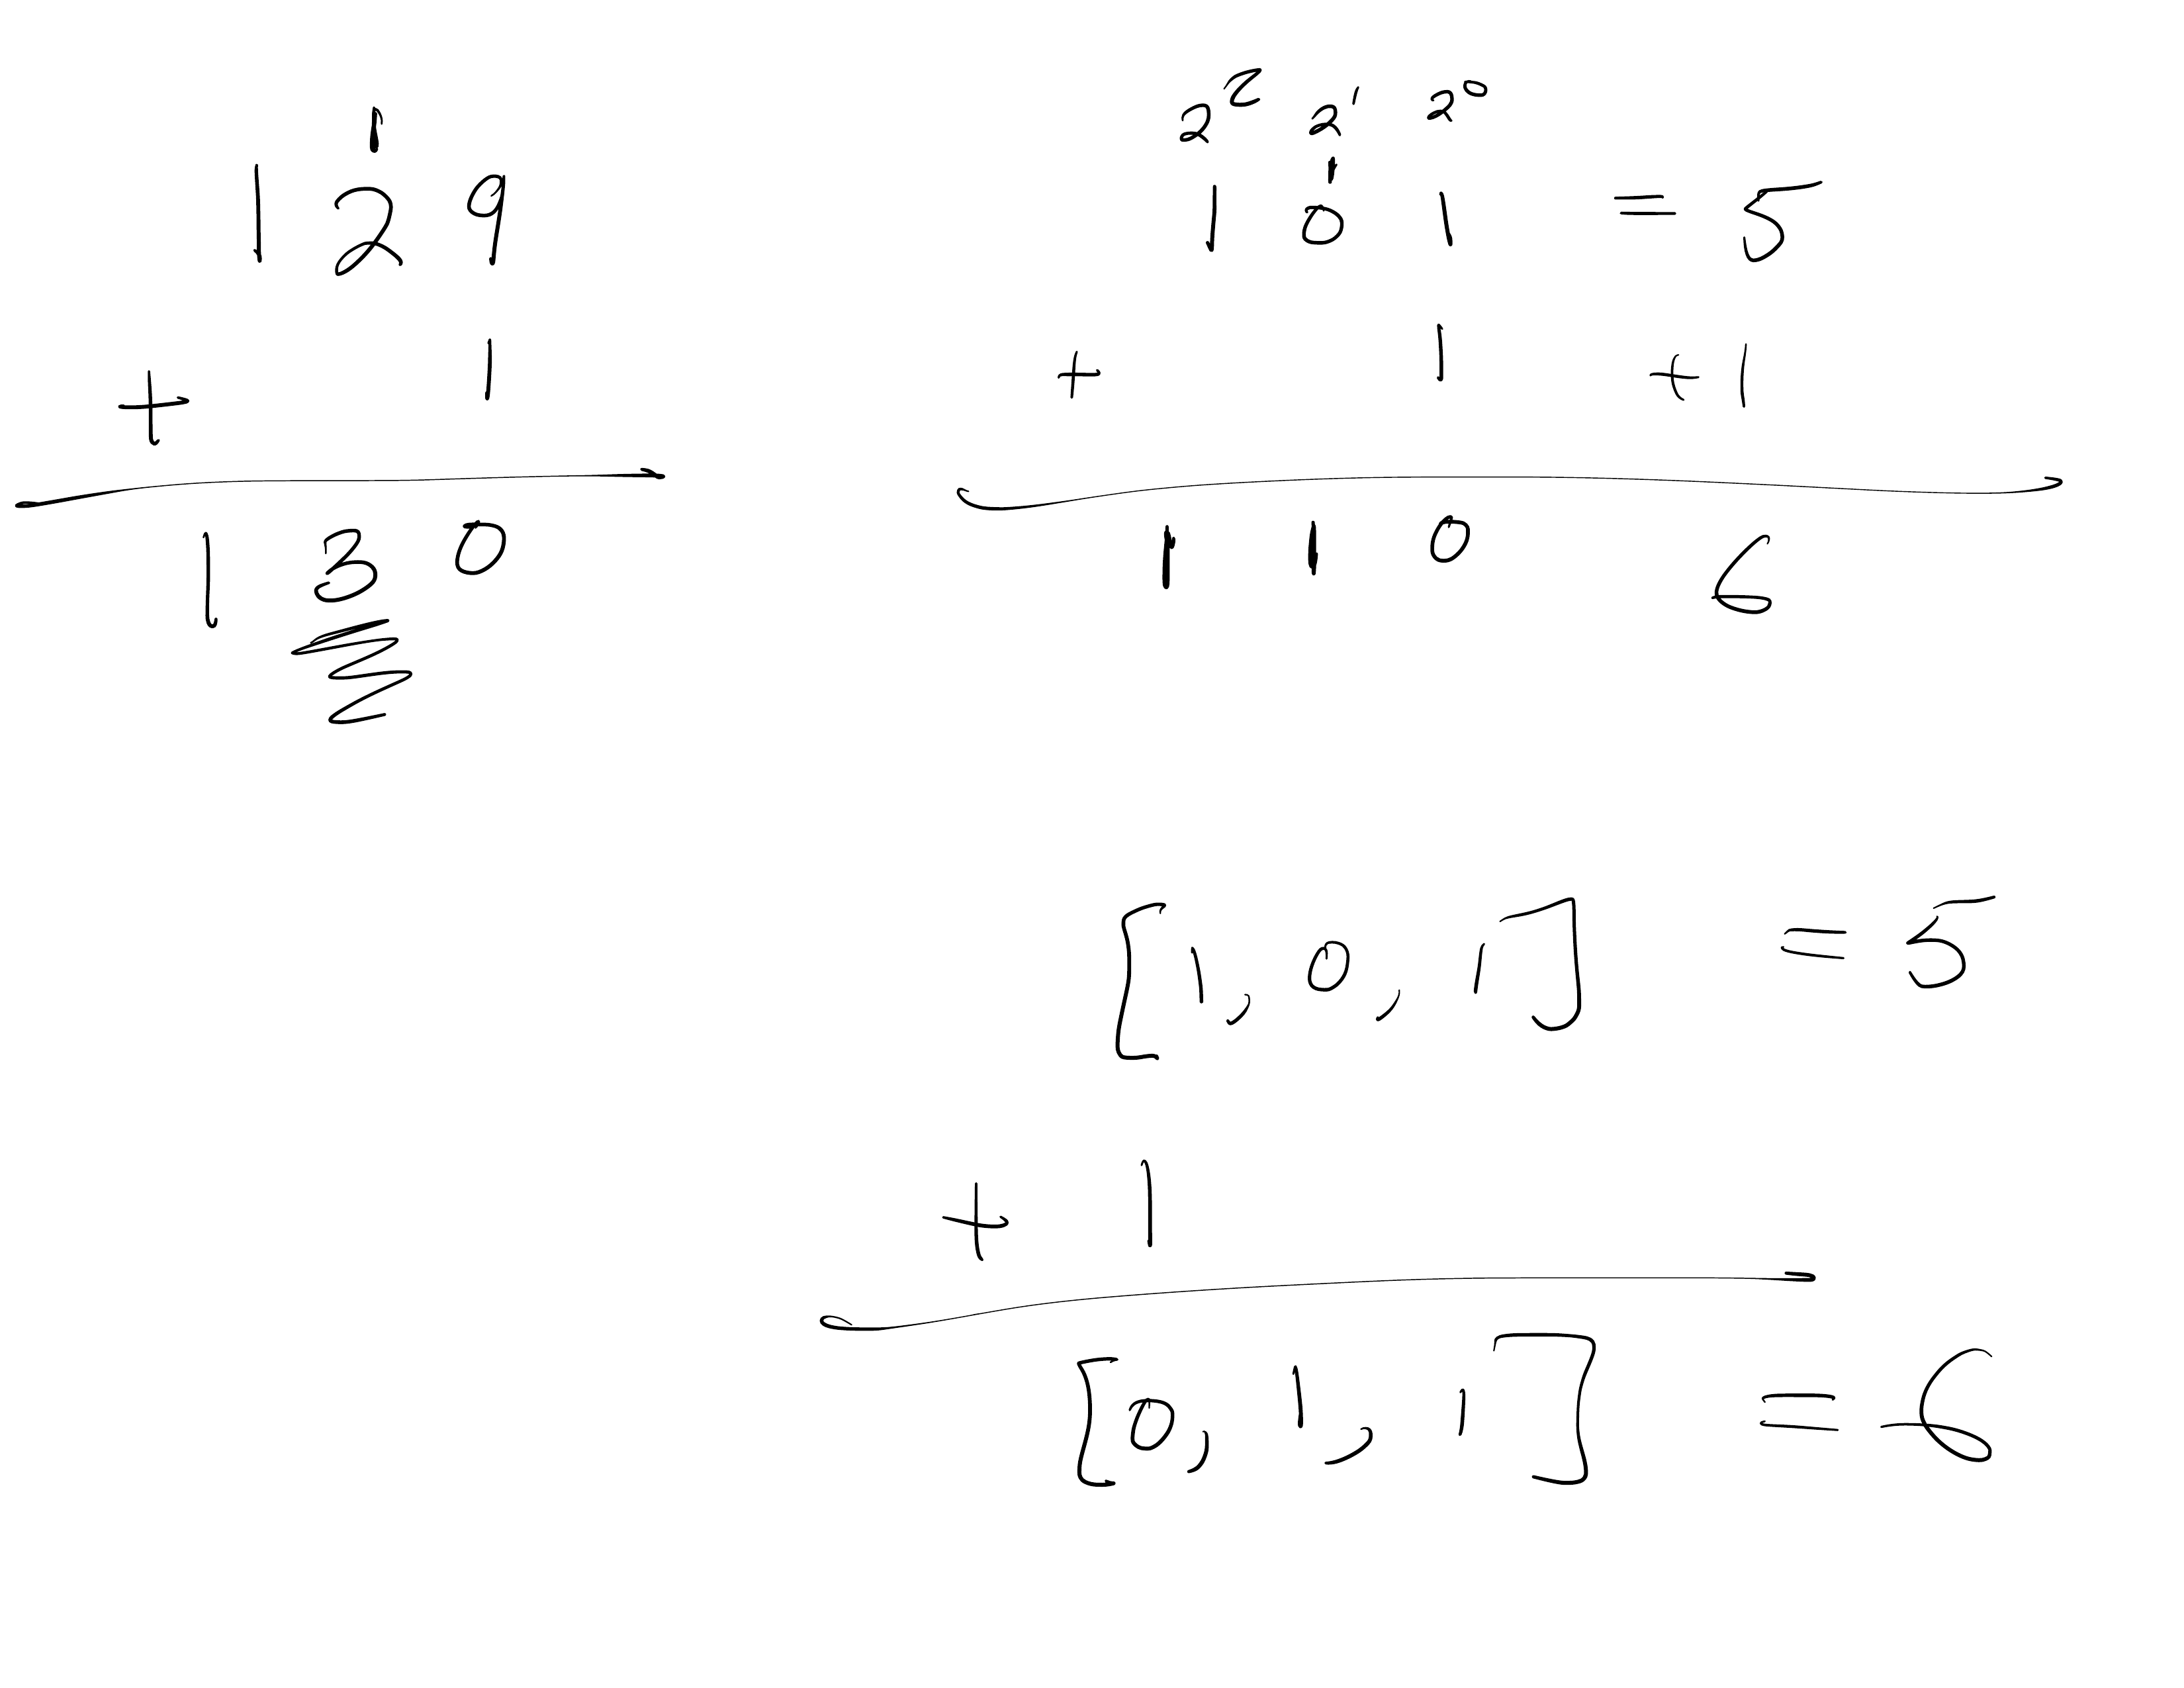 1
1 2 9
+ 1
1 3 0
2² 2¹ 2⁰
1
1 0 1 = 5
+ 1 +1
1 1 0 6
[1, 0, 1] = 5
+ 1
[0, 1, 1] = 6